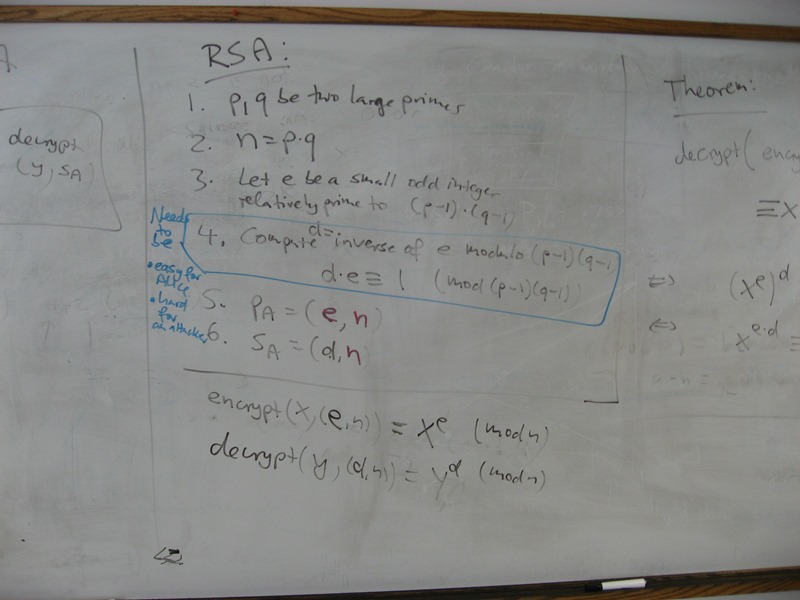 A
decrypt
(y, SA)
RSA:
1. p, q be two large primes
2. n = p·q
3. Let e be a small odd integer
relatively prime to (p-1)·(q-1)
Needs
to
be
• easy for
Alice
• hard
for
an attacker
4. Compute d= inverse of e modulo (p-1)(q-1)
d·e ≡ 1 (mod (p-1)(q-1))
5. PA = (e, n)
6. SA = (d, n)
encrypt(x, (e, n)) = x^e (mod n)
decrypt(y, (d, n)) = y^d (mod n)
Theorem:
decrypt( encry
≡ x
⇔ (x^e)^d
⇔ x^{e·d} ≡